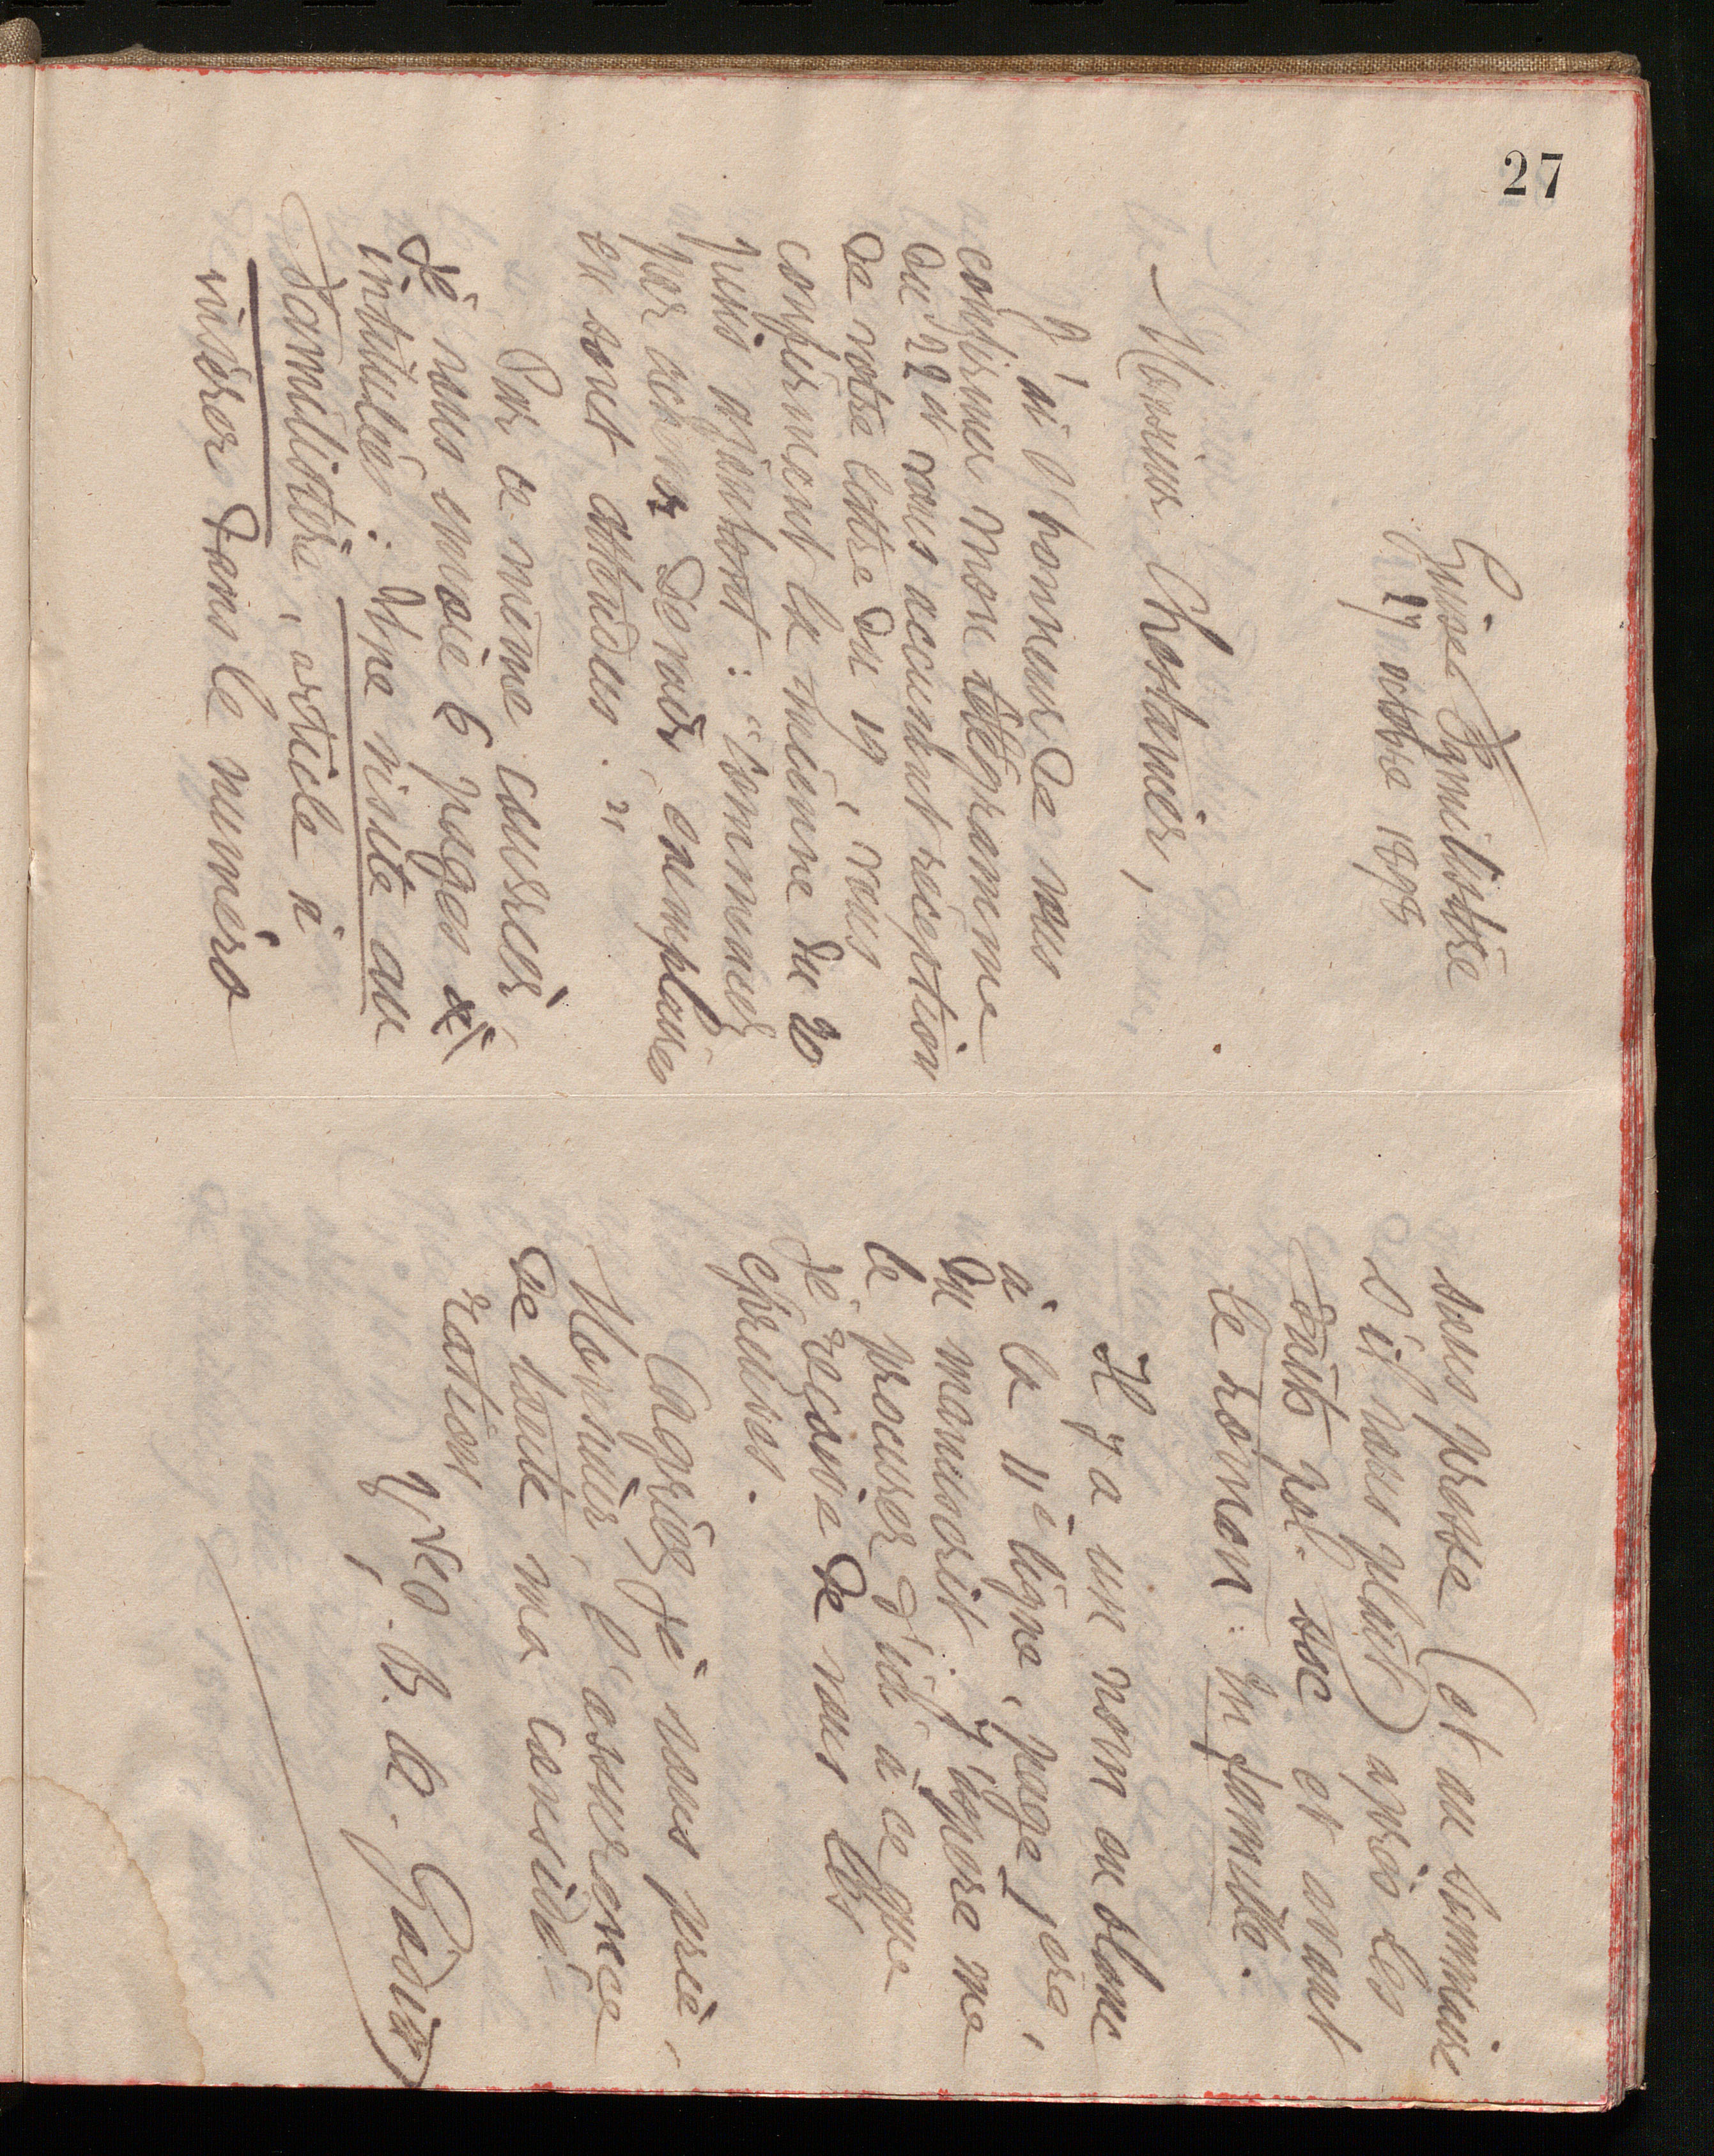 27
Guise Familistère
27 octobre 1898
Monsieur Chastanier,
J'ai l'honneur de vous
confirmer mon télégramme
du 22 et vous accusant réception
de votre lettre du 19, vous
confirmant la mienne du 20
puis ajoutant : "Comment
par devoir, compl
en sont attendus."
Par ce même courrier
je vous envoie 6 pages
intitulées : Une visite au
Familistère, article à
insérer dans le numéro
sous presse (et au sommaire
s'il vous plaît) après les
faits pol. soc et avant
le roman : En famille.
Il y a un nom en blanc
à la 11e ligne, page 1ere,
du manuscrit. J'espère me
le procurer d'ici à ce que
je reçoive de vous les
épreuves.
Agréez je vous prie,
Monsieur, l'assurance
de toute ma considé-
ration
Vve J. B. A. Godin